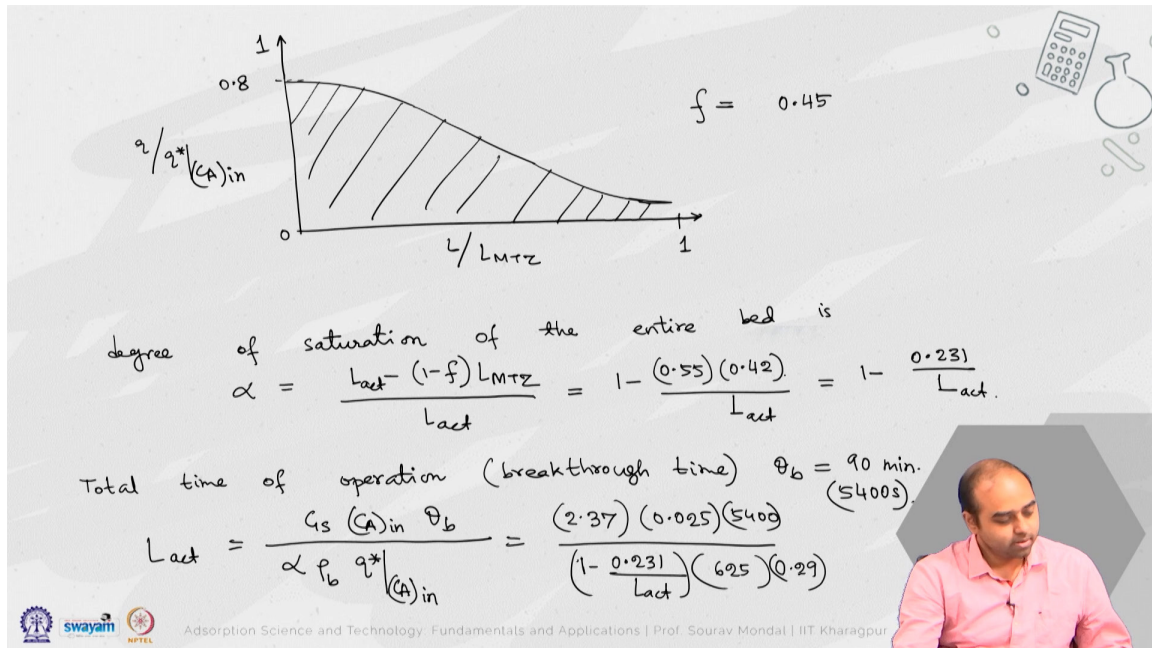 1
0.8
q/q*|(CA)in
0
L/LMTZ
1
f = 0.45
degree of saturation of the entire bed is
α = Lact - (1-f) LMTZ / Lact = 1 - (0.55)(0.42) / Lact = 1 - 0.231 / Lact.
Total time of operation (breakthrough time) θb = 90 min.
(5400s).
Lact = Gs (CA)in θb / α ρb q*|(CA)in = (2.37)(0.025)(5400) / (1 - 0.231 / Lact)(625)(0.29)
swayam
NPTEL
Adsorption Science and Technology: Fundamentals and Applications | Prof. Sourav Mondal | IIT Kharagpur